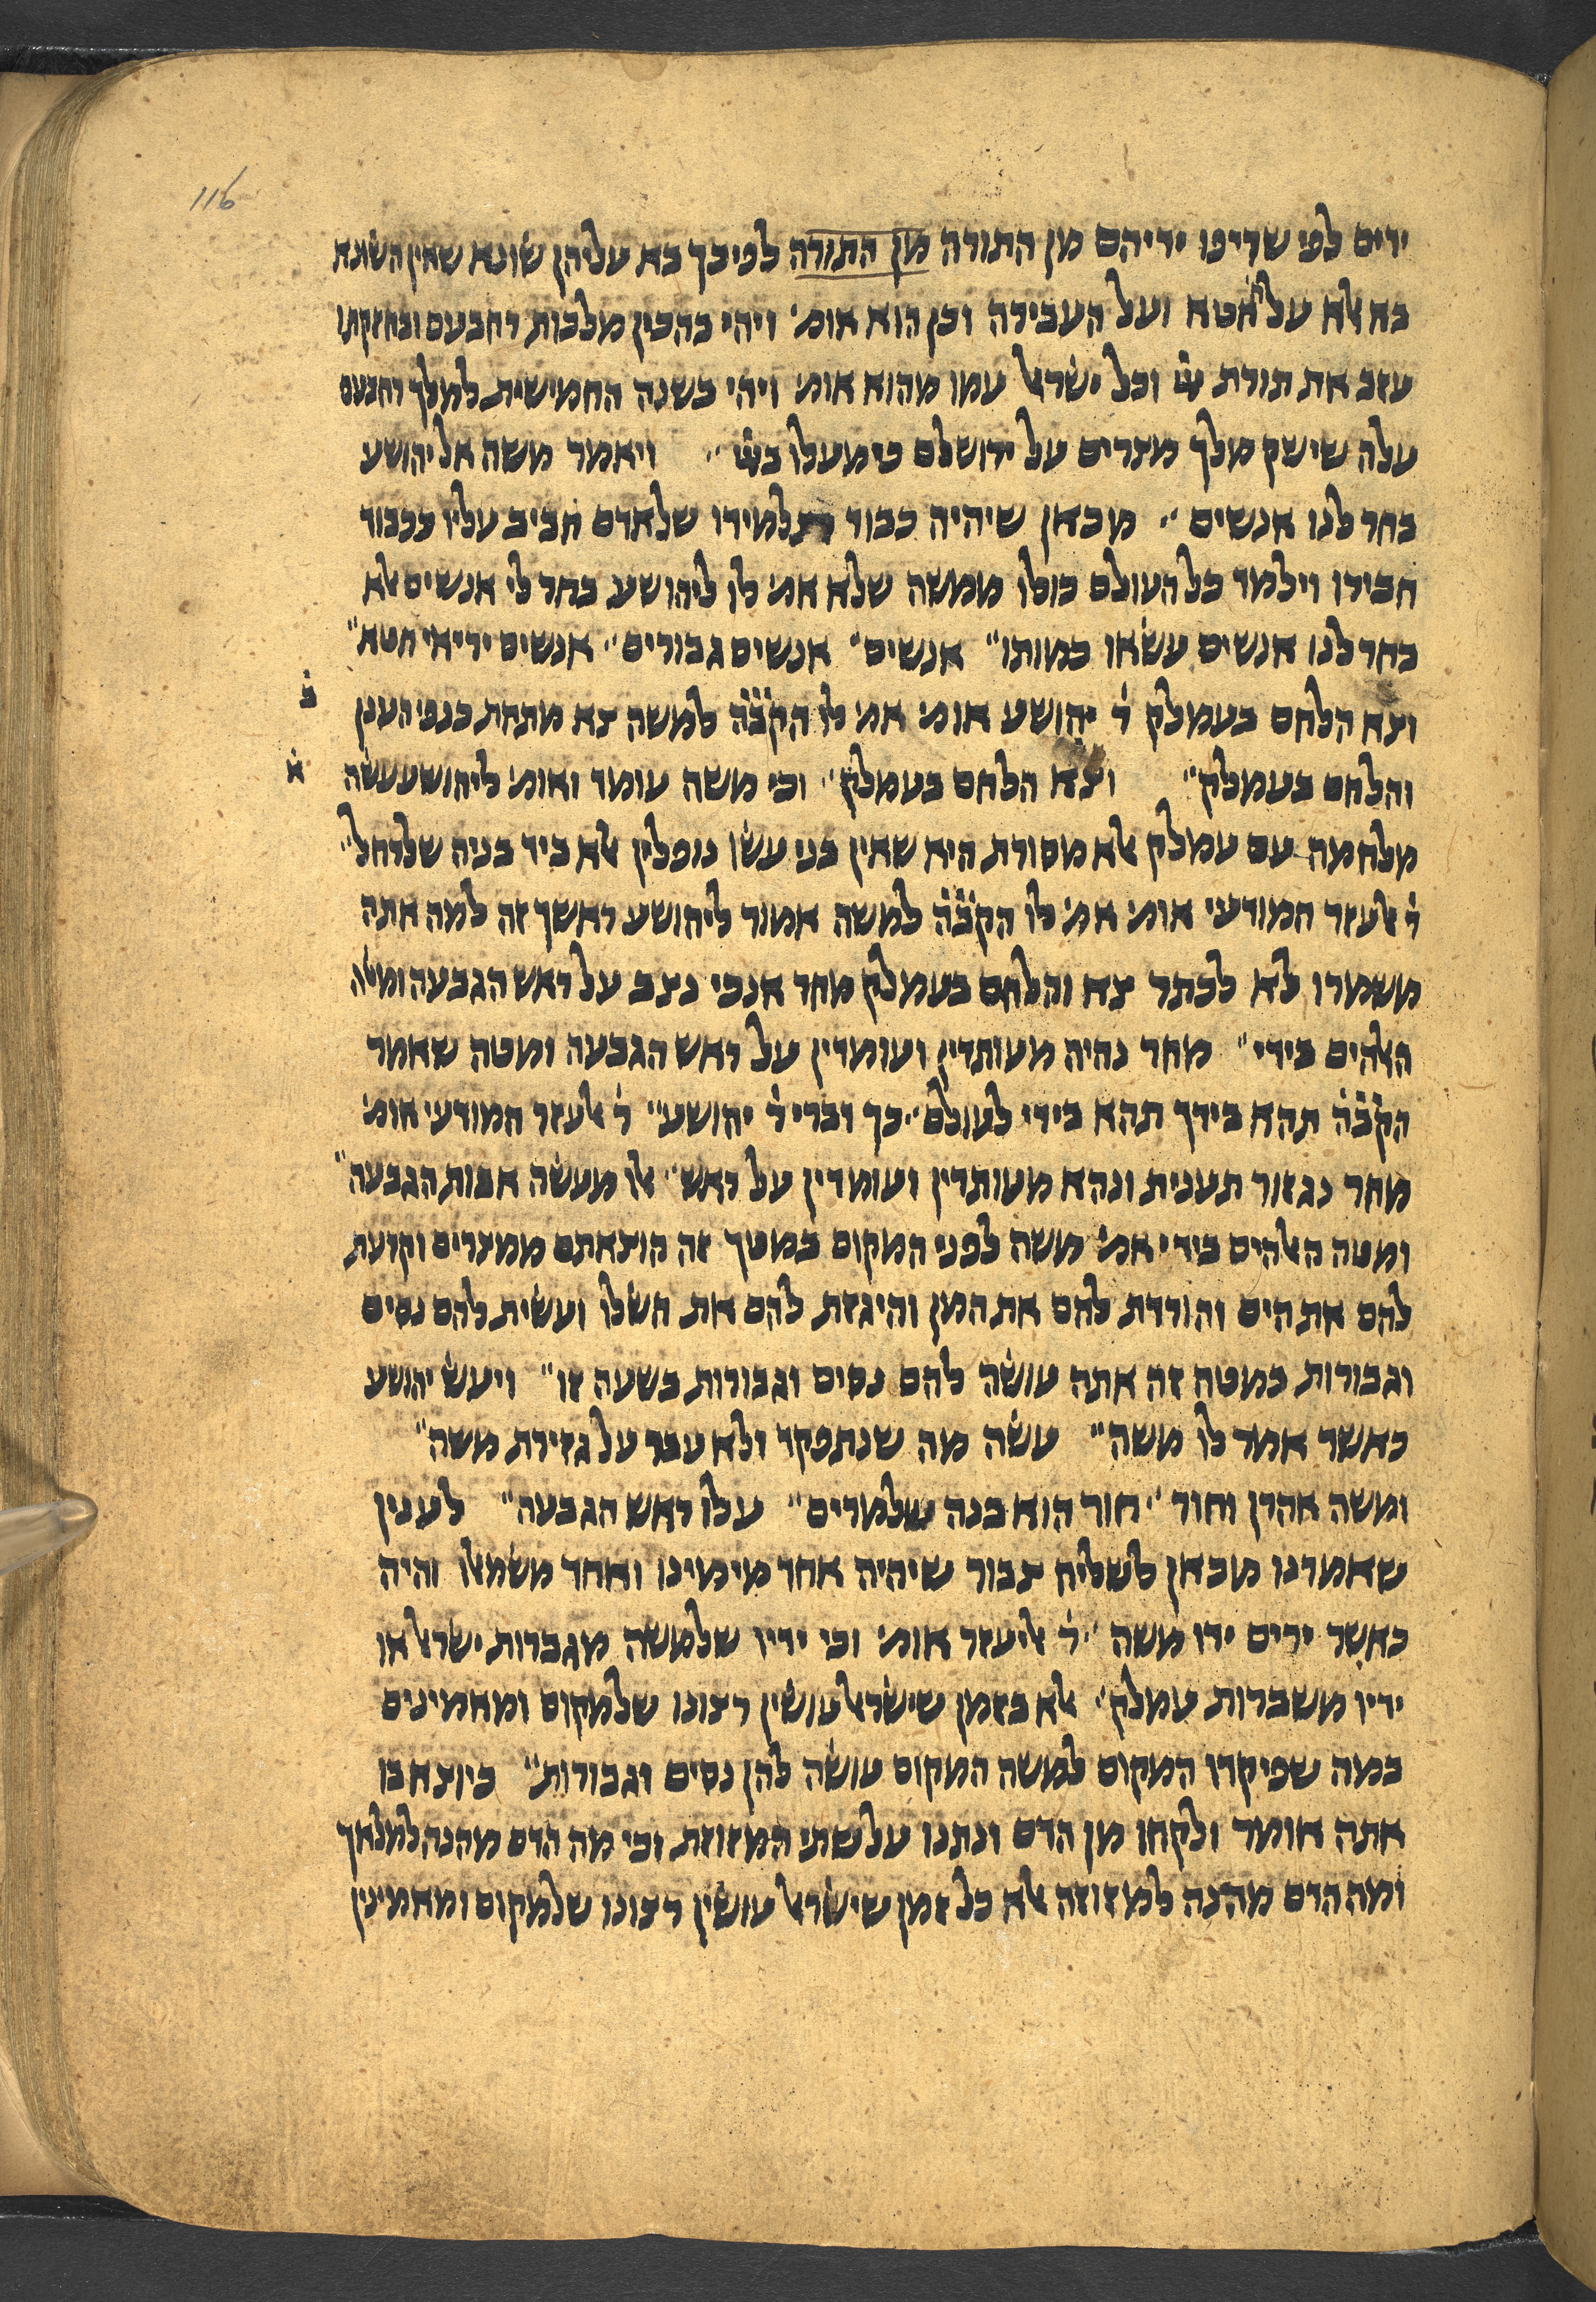 116
ידים לפי שריפו ידיהם מן התורה מן התורה לפיכך בא עליהן שונא שאין השונא
בא אלא על חטא ועל העבירה וכן הוא אומ׳ ויהי כהכין מלכות רחבעם וכחזקתו
עזב את תורת יי׳ וכל ישראל עמו מהוא אומ׳ ויהי בשנה החמישית למלך רחבעם
עלה שישק מלך מצרים על ירושלם כי מעלו ביי׳ ״ ויאמר משה אל יהושע
בחר לנו אנשים ״ מכאן שיהיה כבוד תלמידו שלאדם חביב עליו ככבוד
חבירו וילמד כל העולם כולו ממשה שלא אמ׳ לו ליהושע בחר לי אנשים אלא
בחר לנו אנשים עשאו כמותו״ אנשים״ אנשים גבורים״ אנשים יריאי חטא״
וצא הלחם בעמלק ר׳ יהושע אומ׳ אמ׳ לו הקב״ה למשה צא מתחת כנפי הענן
ב
והלחם בעמלק״ וצא הלחם בעמלק״ וכי משה עומד ואומ׳ ליהושע עשה
א
מלחמה עם עמלק אלא מסורת היא שאין בני עשו נופלין אלא ביד בניה שלרחל״
ר׳ אלעזר המודעי אומ׳ אמ׳ לו הקב״ה למשה אמור ליהושע ראשך זה למה אתה
משמרו לא לכתר צא והלחם בעמלק מחר אנכי נצב על ראש הגבעה ומטה
האלהים בידי״ מחר נהיה מעותדין ועומדין על ראש הגבעה ומטה שאמר
הקב״ה תהא בידך תהא בידי לעולם״ כך דברי ר׳ יהושע״ ר׳ אלעזר המודעי אומ׳
מחר נגזור תענית ונהא מעותדין ועומדין על ראש״ אלו מעשה אבות הגבעה״
ומטה האלהים בידי אמ׳ משה לפני המקום במטך זה הוצאתם ממצרים וקרעת
להם את הים והורדת להם את המן והיגזת להם את השלו ועשית להם נסים
וגבורות במטה זה אתה עושה להם נסים וגבורות בשעה זו״ ויעש יהושע
כאשר אמר לו משה״ עשה מה שנתפקד ולא עבר על גזירת משה״
ומשה אהרן וחור״ חור הוא בנה שלמרים״ עלו ראש הגבעה״ לענין
שאמרנו מכאן לשליח צבור שיהיה אחד מימינו ואחד משמאלו והיה
כאשר ירים ידו משה״ ר׳ אליעזר אומ׳ וכי ידיו שלמשה מגברות ישראל או
ידיו משברות עמלק״ אלא בזמן שישראל עושין רצונו שלמקום ומאמינים
במה שפיקדו המקום למשה המקום עושה להן נסים וגבורות״ כיוצא בו
אתה אומר ולקחו מן הדם ונתנו על שתי המזוזת וכי מה הדם מהנה למלאך
ומה הדם מהנה למזוזה אלא כל זמן שישראל עושין רצונו שלמקום ומאמינין